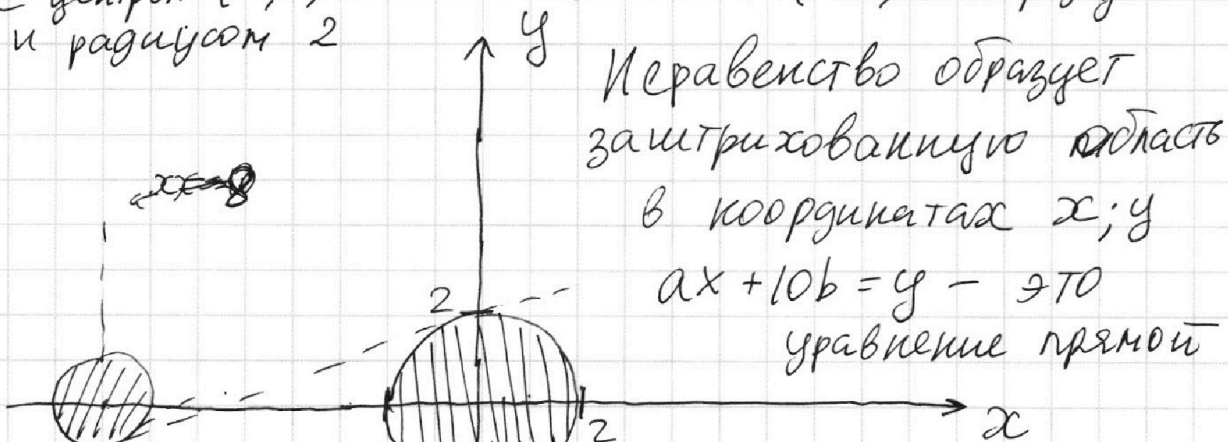 и радиусом 2
y
Неравенство образует
заштрихованную область
в координатах x; y
ax + 10b = y — это
уравнение прямой
2
2
x